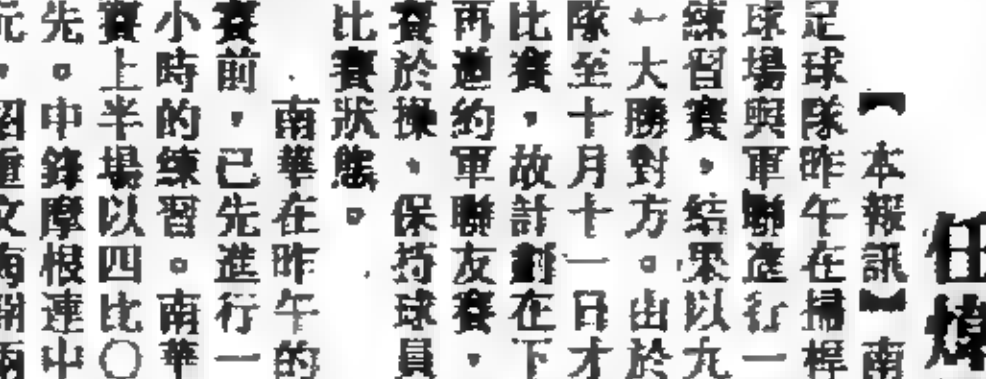 任煒
【本報訊】南
足球隊昨午在掃桿
球場與軍聯進行一
練習賽，結果以九
大勝對方。由於
隊至十月十一日才
比賽，故計劃在下
再邀約軍聯友賽，
賽於操，保持球員
比賽狀態。
南華在昨午的
賽前，已先進行一
小時的練習。南華
賽上半場以四比〇
先。中鋒摩根連中